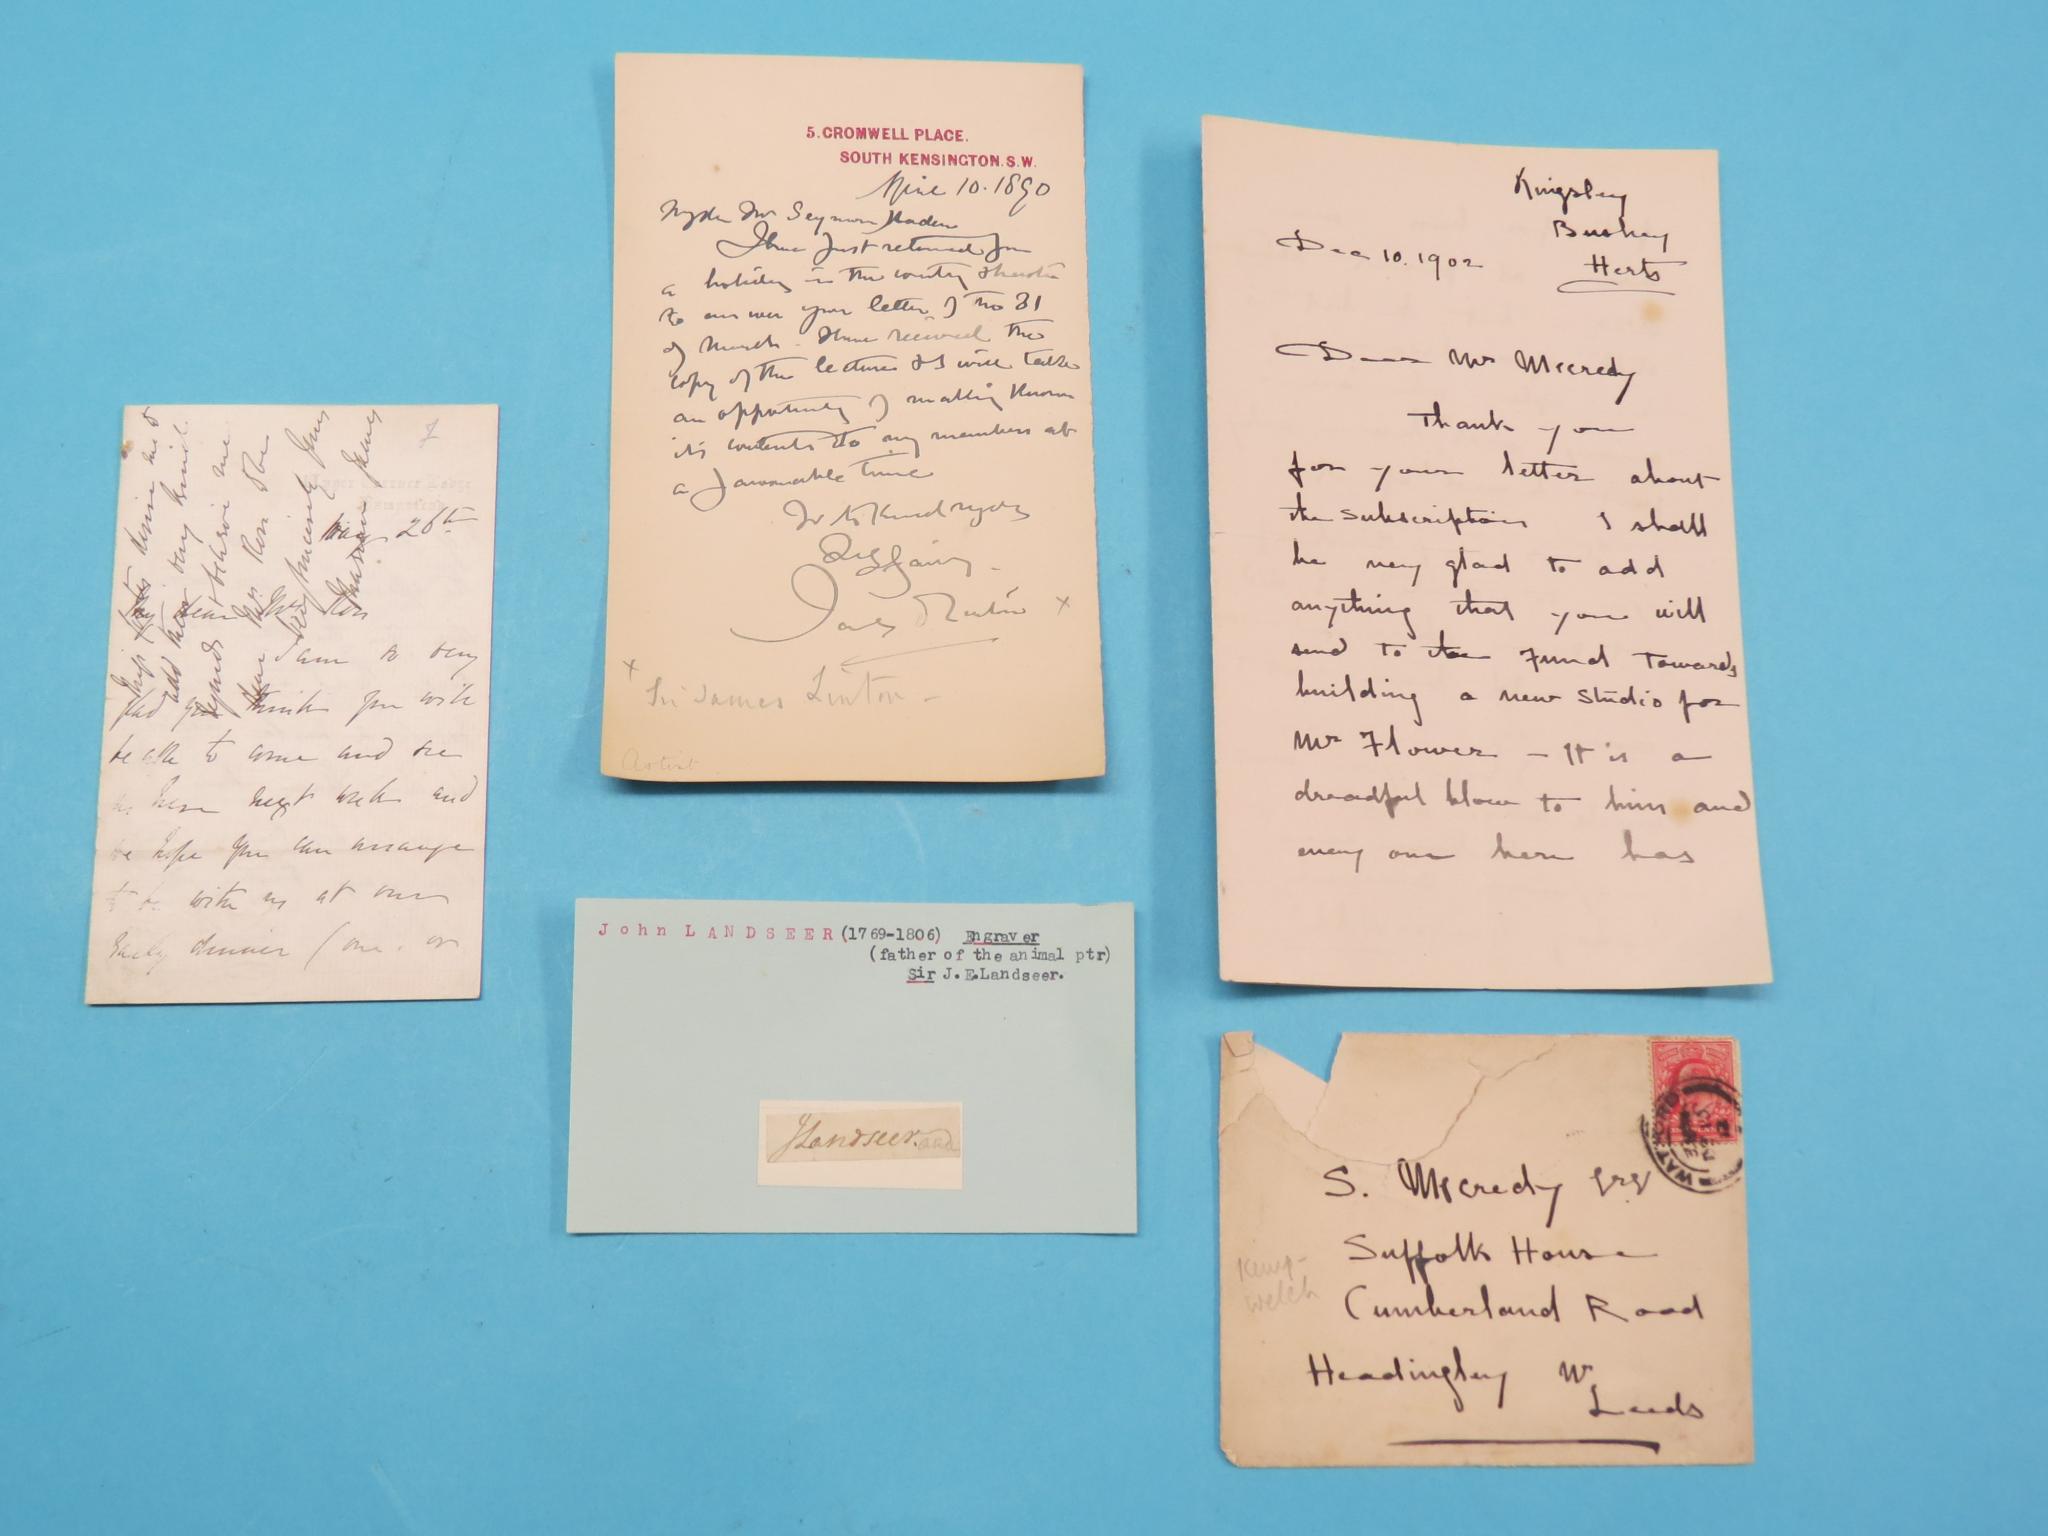 add
very kind
believe me
Mrs Ross
May 26th
Ross
I am so very
glad you think you will
be able to come and see
us here next week and
we hope you can arrange
to be with us at our
early dinner (one. or
5. CROMWELL PLACE.
SOUTH KENSINGTON. S.W.
10. 1890
My dear Mr Seymour Haden
I have just returned from
a holiday in the country & hasten
to answer your letter of the 31
of March. I have received the
copy of the lecture & I will take
an opportunity of making known
its contents to my members at
a favourable time
James Linton x
x
Sir James Linton -
Artist
John LANDSEER (1769-1806) Engraver
(father of the animal ptr)
Sir J. E. Landseer.
J Landseer. and
Kingsley
Bushey
Herts
Dec 10. 1902
Dear Mr Mccredy
Thank you
for your letter about
the subscription I shall
be very glad to add
anything that you will
send to the Fund towards
building a new studio for
Mr Flower - It is a
dreadful blow to him and
every one here has
WATFORD
S. Mccredy Esq
Suffolk House
Cumberland Road
Headingley
Leeds
Kemp-
Welch